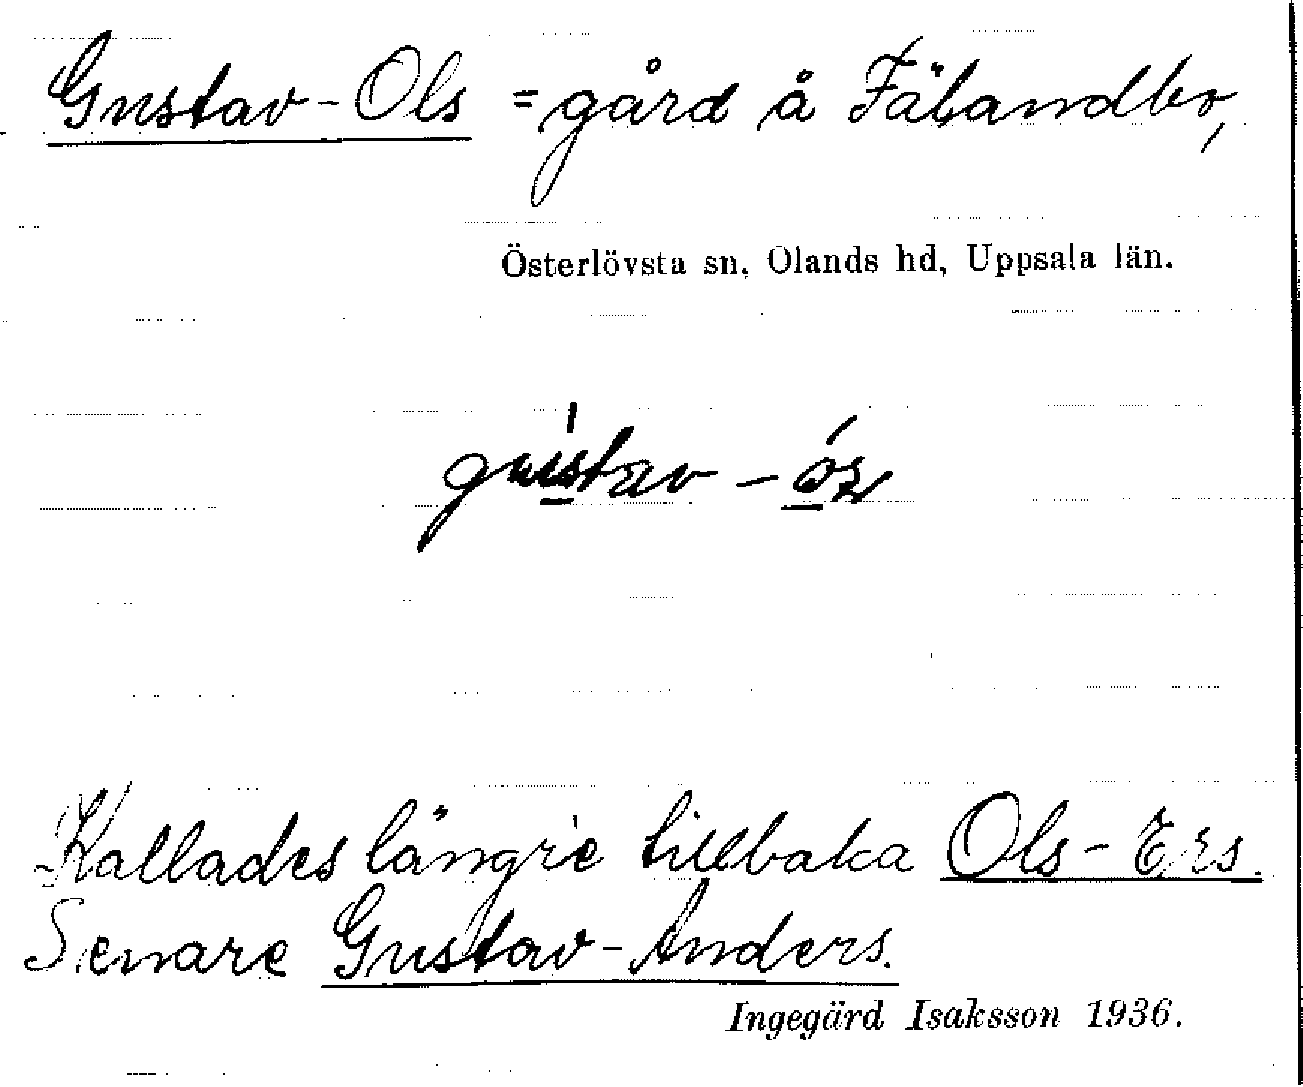 Gustav-Ols = gård å Fälandbo,
Österlövsta sn, Olands hd, Uppsala län.
gústav - óz
Kallades längre tillbaka Ols-Ers.
Senare Gustav-Anders.
Ingegärd Isaksson 1936.